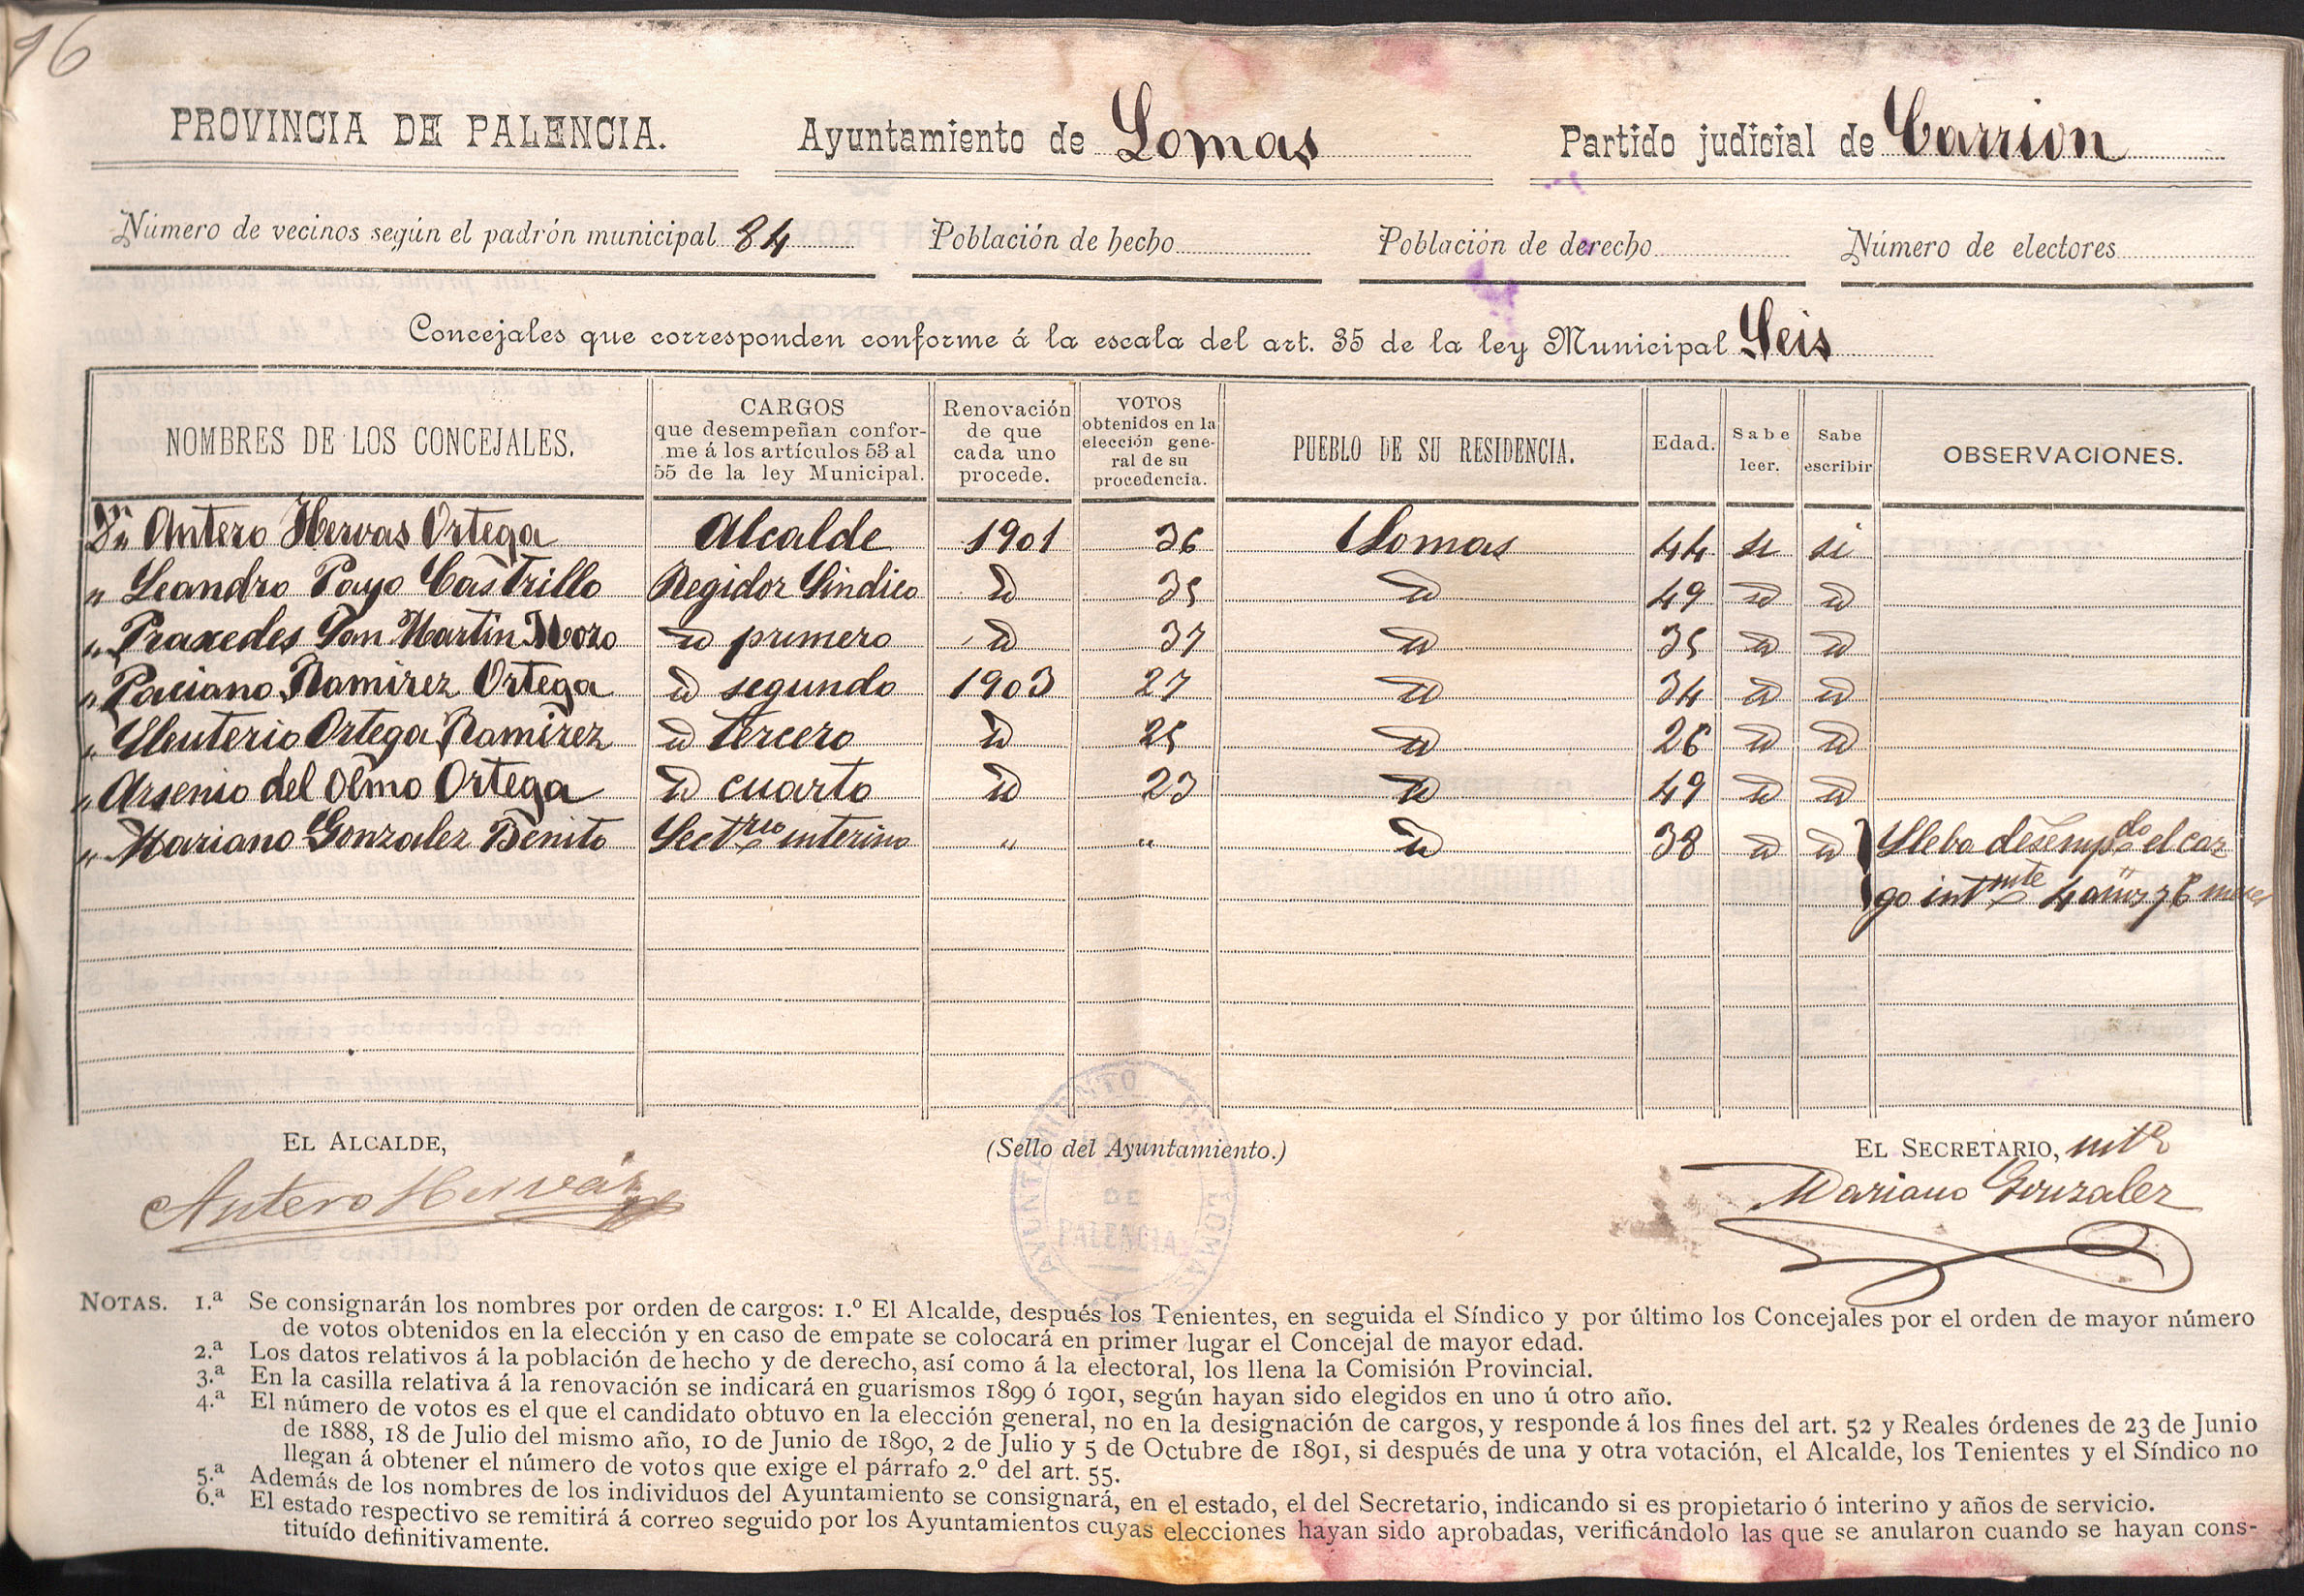 96
PROVINCIA DE PALENCIA. Ayuntamiento de Lomas Partido judicial de Carrion
Número de vecinos según el padrón municipal 84 Población de hecho Población de derecho Número de electores
Concejales que corresponden conforme á la escala del art. 35 de la ley Municipal Seis
NOMBRES DE LOS CONCEJALES. CARGOS que desempeñan confor- me á los artículos 53 al 55 de la ley Municipal. Renovación de que cada uno procede. VOTOS obtenidos en la elección gene- ral de su procedencia. PUEBLO DE SU RESIDENCIA. Edad. Sabe leer. Sabe escribir OBSERVACIONES.
Dn Antero Hervas Ortega Alcalde 1901 36 Lomas 44 si si
" Leandro Payo Castrillo Regidor Sindico id 35 id 49 id id
" Praxedes San Martin Mozo id primero id 37 id 35 id id
" Paciano Ramirez Ortega id segundo 1903 27 id 34 id id
" Eleuterio Ortega Ramirez id tercero id 25 id 26 id id
" Arsenio del Olmo Ortega id cuarto id 23 id 49 id id
" Mariano Gonzalez Benito Sectrio interino " " id 38 id id Lleba desempdo el car
go intmte 4 años y 6 meses
EL ALCALDE, (Sello del Ayuntamiento.) EL SECRETARIO, intº
Antero Hervás Mariano Gonzalez
AYUNTAMIENTO DE LOMAS
DE
PALENCIA
NOTAS. 1.ª Se consignarán los nombres por orden de cargos: 1.º El Alcalde, después los Tenientes, en seguida el Síndico y por último los Concejales por el orden de mayor número
de votos obtenidos en la elección y en caso de empate se colocará en primer lugar el Concejal de mayor edad.
2.ª Los datos relativos á la población de hecho y de derecho, así como á la electoral, los llena la Comisión Provincial.
3.ª En la casilla relativa á la renovación se indicará en guarismos 1899 ó 1901, según hayan sido elegidos en uno ú otro año.
4.ª El número de votos es el que el candidato obtuvo en la elección general, no en la designación de cargos, y responde á los fines del art. 52 y Reales órdenes de 23 de Junio
de 1888, 18 de Julio del mismo año, 10 de Junio de 1890, 2 de Julio y 5 de Octubre de 1891, si después de una y otra votación, el Alcalde, los Tenientes y el Síndico no
llegan á obtener el número de votos que exige el párrafo 2.º del art. 55.
5.ª Además de los nombres de los individuos del Ayuntamiento se consignará, en el estado, el del Secretario, indicando si es propietario ó interino y años de servicio.
6.ª El estado respectivo se remitirá á correo seguido por los Ayuntamientos cuyas elecciones hayan sido aprobadas, verificándolo las que se anularon cuando se hayan cons-
tituído definitivamente.